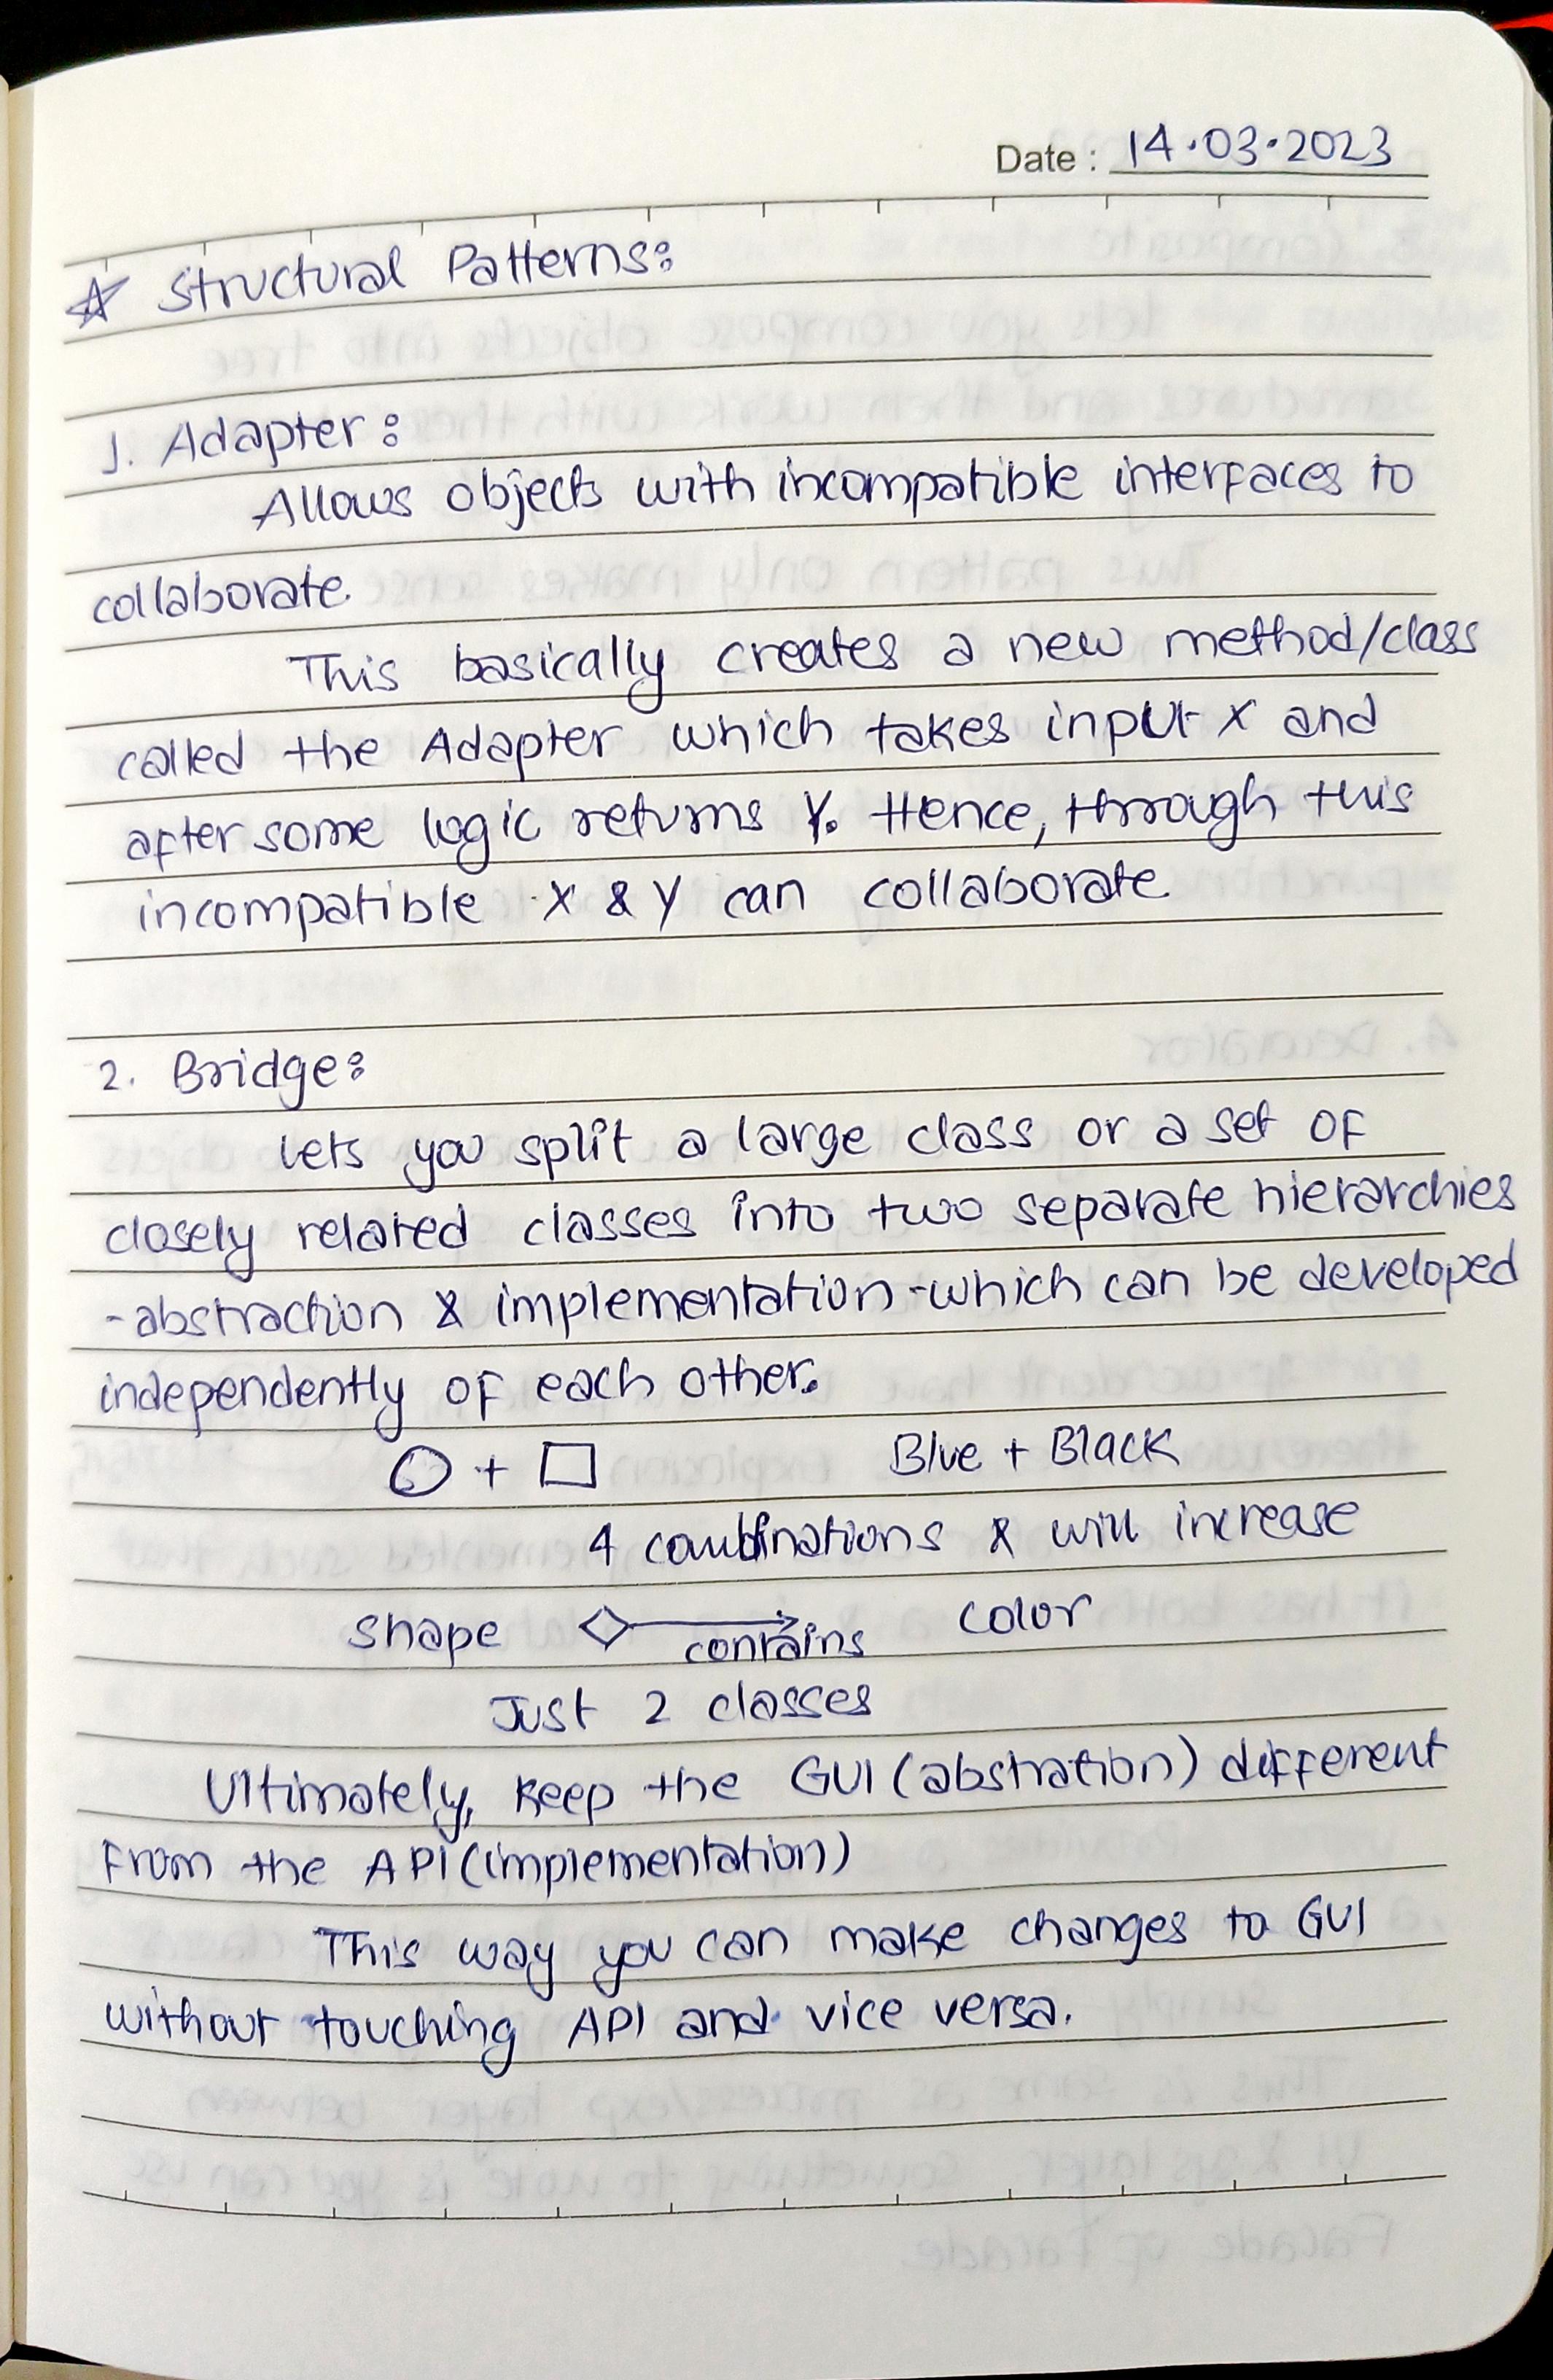 Date : 14.03.2023
☆ Structural Patterns:
1. Adapter :
Allows objects with incompatible interfaces to
collaborate.
This basically creates a new method/class
called the Adapter which takes input X and
after some logic returns Y. Hence, through this
incompatible X & Y can collaborate
2. Bridge:
Lets you split a large class or a set of
closely related classes into two separate hierarchies
-abstraction & implementation-which can be developed
independently of each other.
○ + □ Blue + Black
4 combinations & will increase
shape ◇→ contains color
Just 2 classes
Ultimately, keep the GUI (abstration) different
from the API (implementation)
This way you can make changes to GUI
without touching API and vice versa.